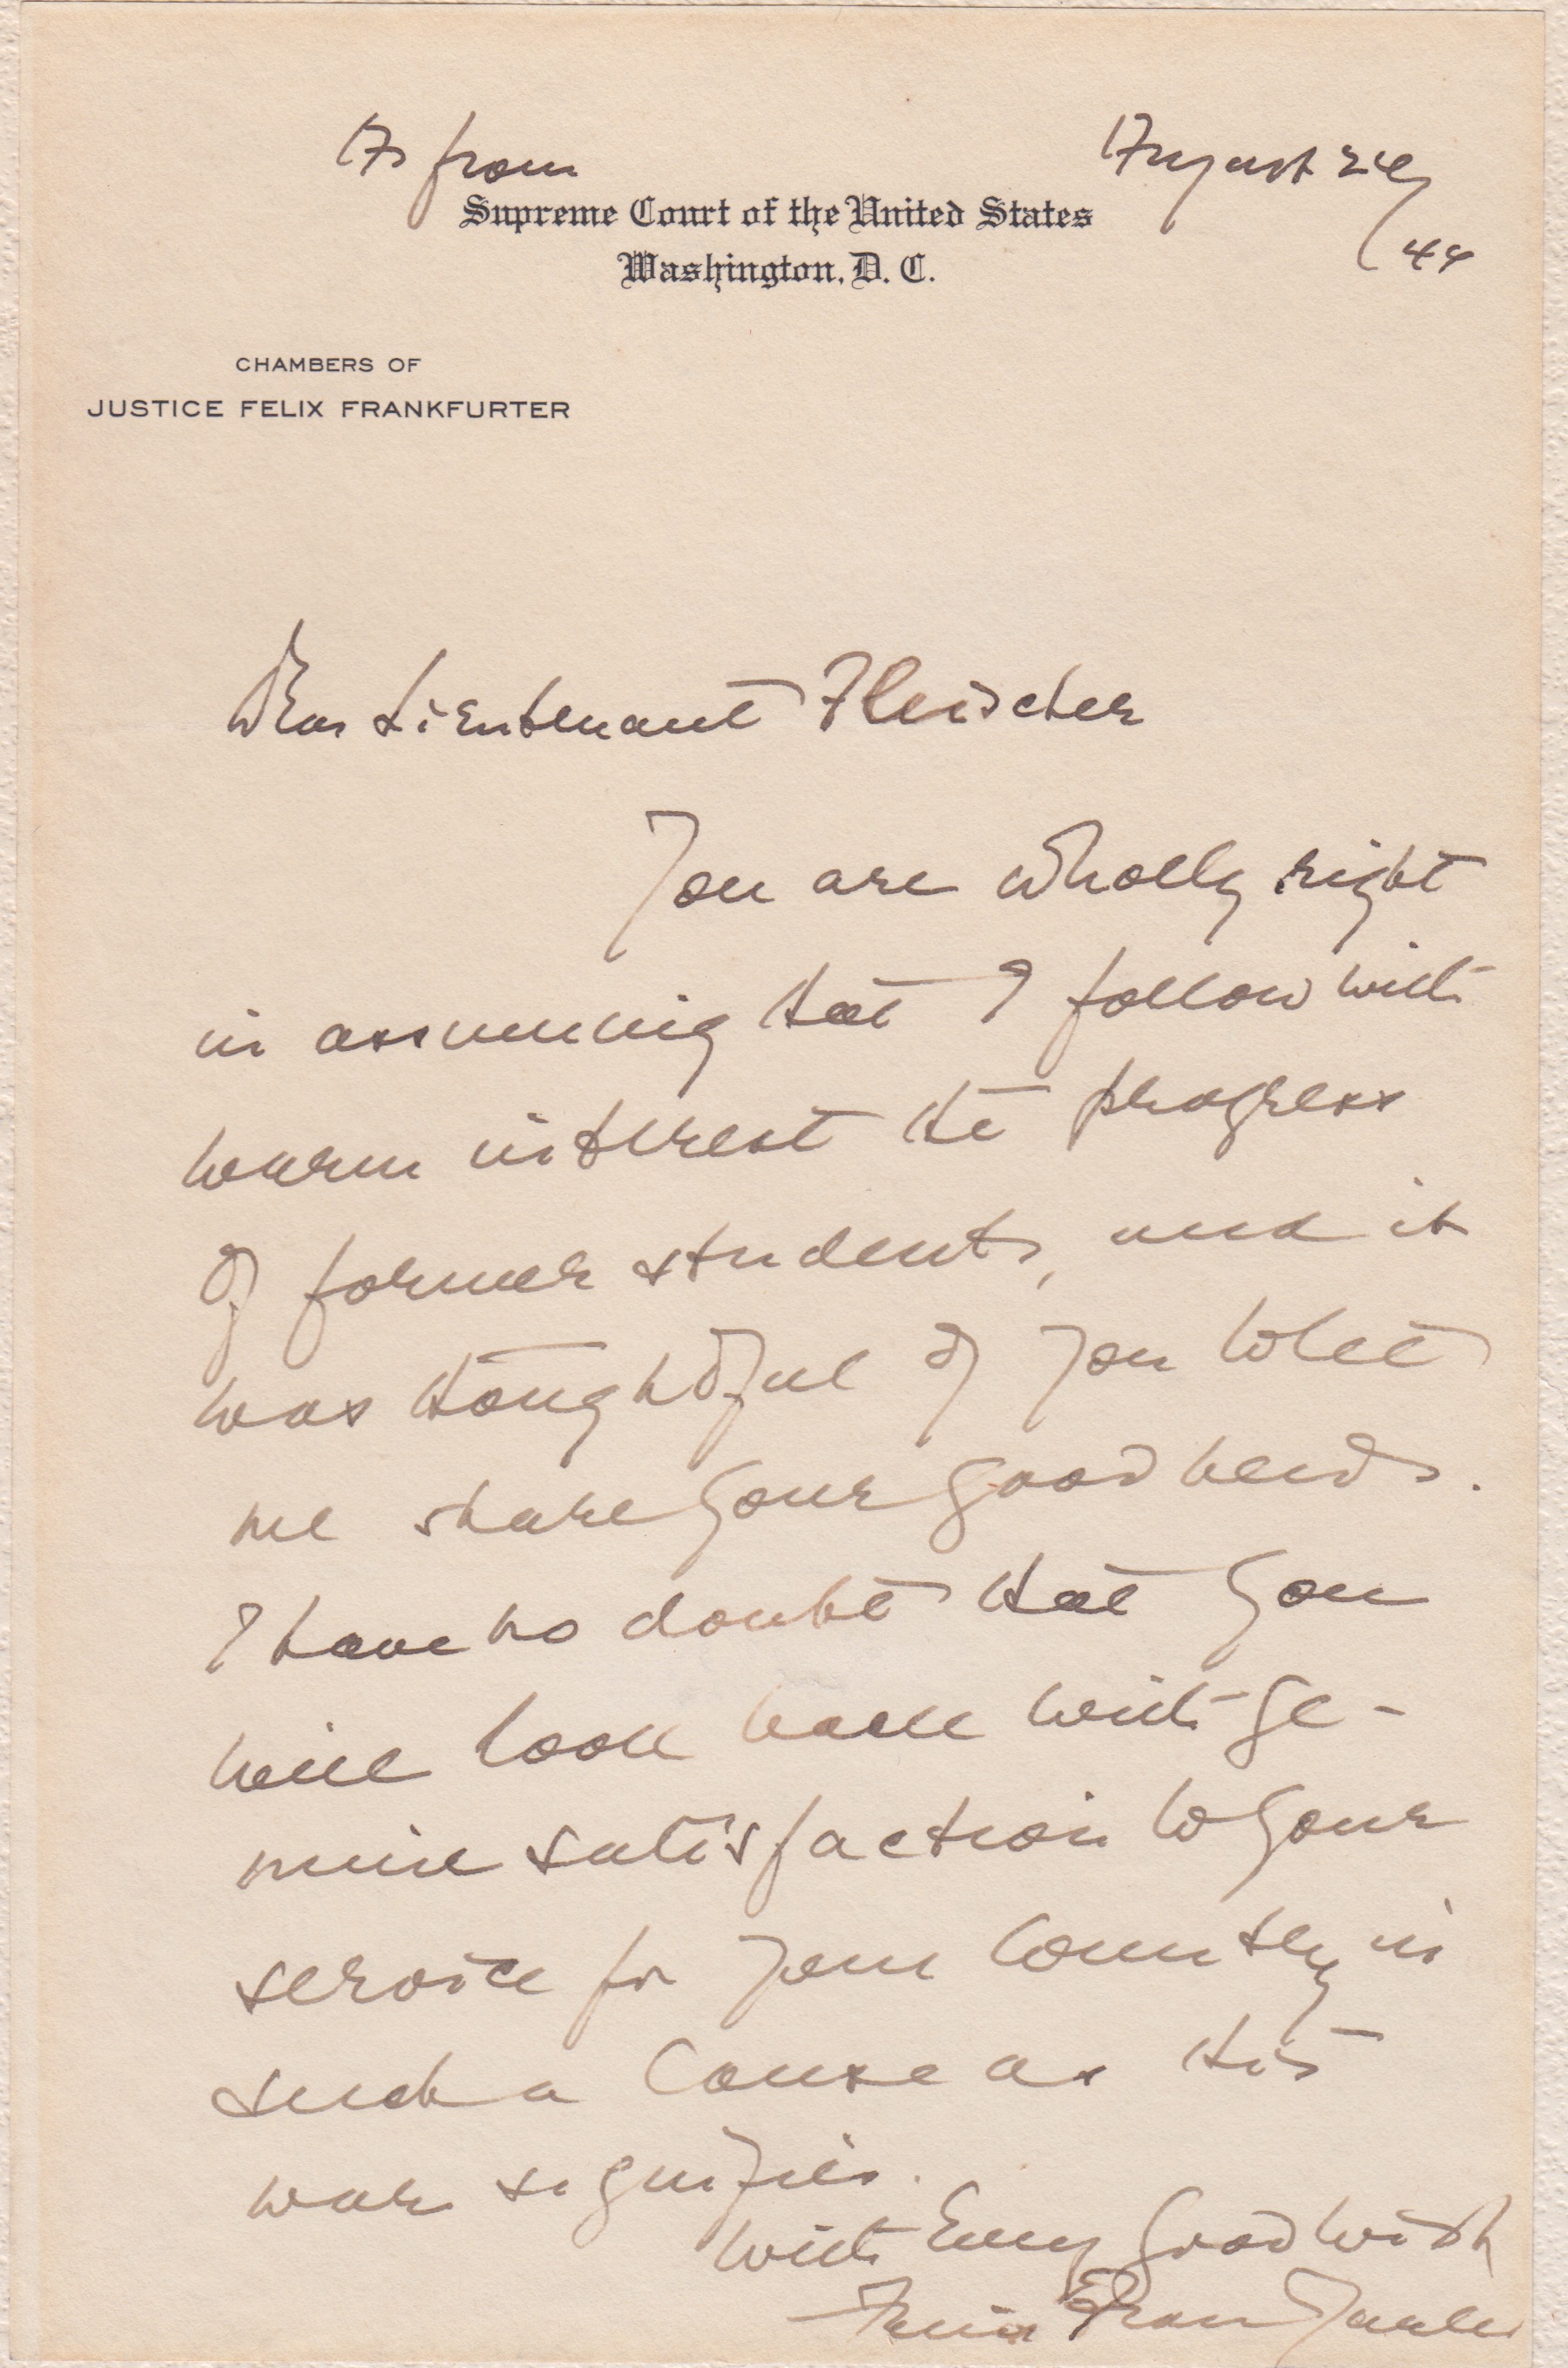 As from
August 24/44
Supreme Court of the United States
Washington, D. C.
CHAMBERS OF
JUSTICE FELIX FRANKFURTER
Dear Lieutenant Fleischer
You are wholly right
in assuming that I follow with
warm interest the progress
of former students, and it
was thoughtful of you to let
me share your good news.
I have no doubt that you
will look back with ge-
nuine satisfaction to your
service for your country in
such a cause as this
war signifies.
With every good wish
Felix Frankfurter